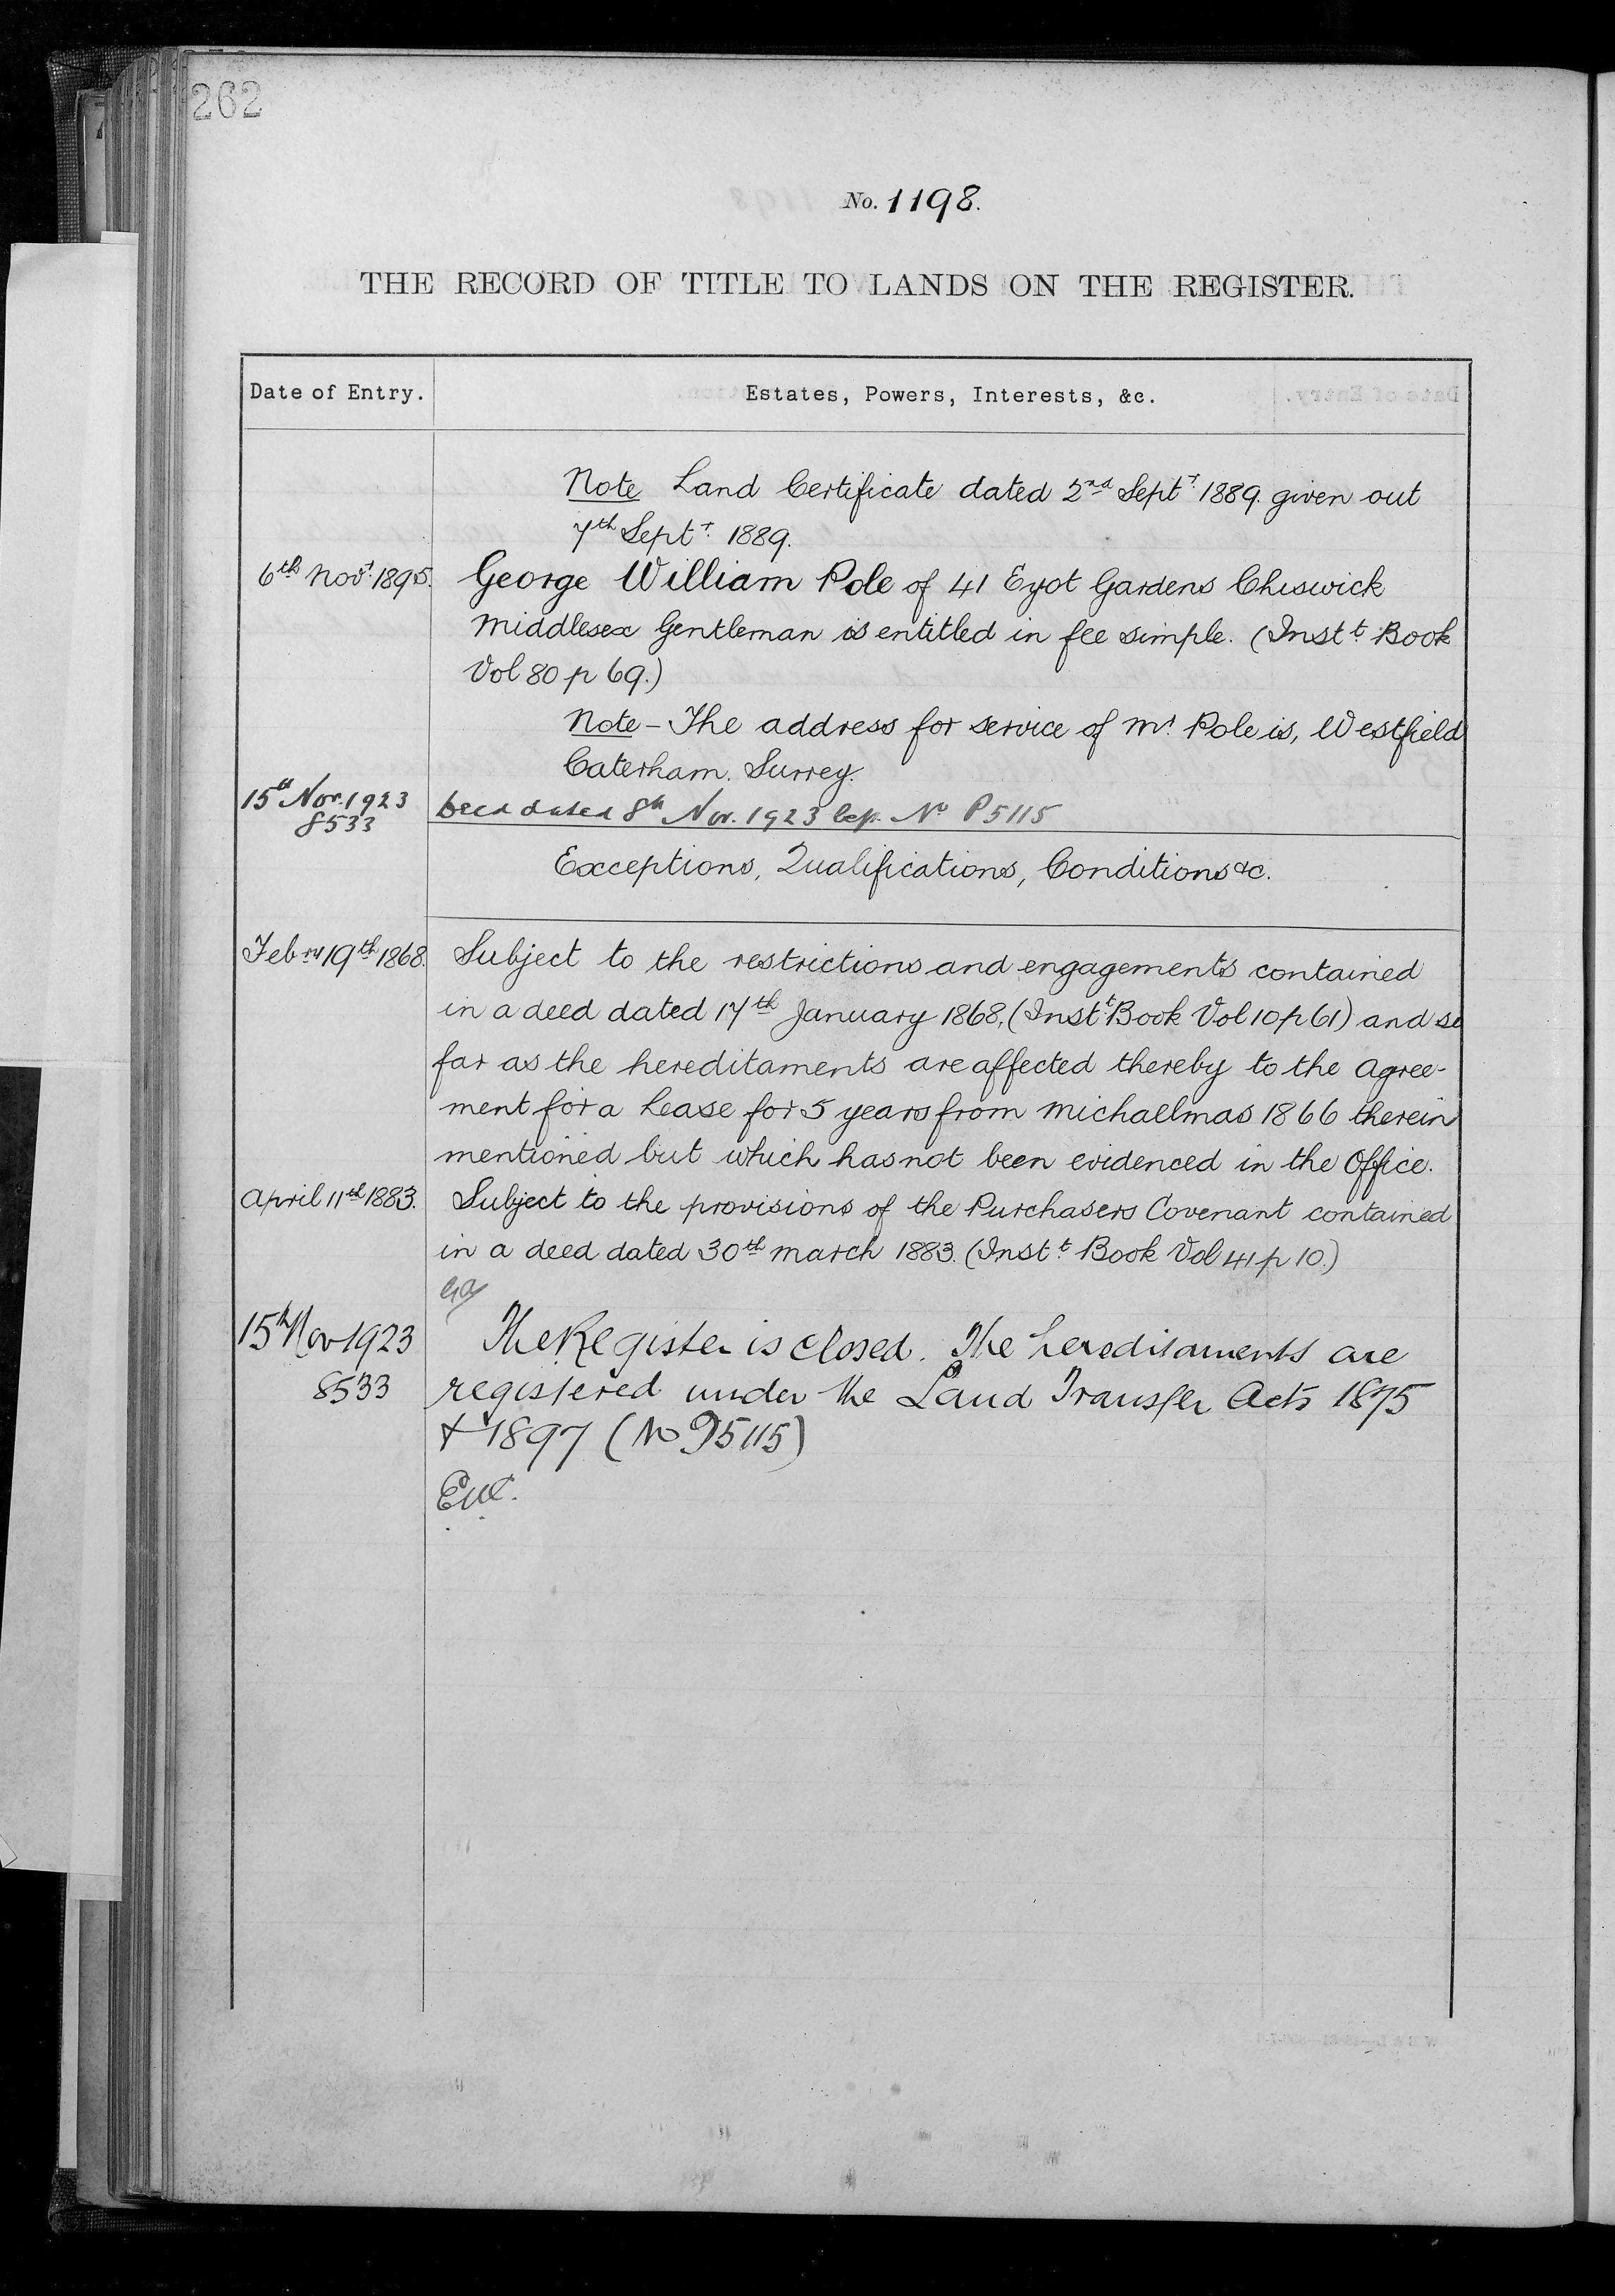 262
No. 1198.
THE RECORD OF TITLE TO LANDS ON THE REGISTER.
Date of Entry. Estates, Powers, Interests, &c.
Note Land Certificate dated 2nd Septr. 1889. given out
7th Septr. 1889.
6th Novr. 1895. George William Pole of 41 Eyot Gardens Chiswick
Middlesex Gentleman is entitled in fee simple. (Instt. Book
Vol 80 p 69.)
Note - The address for service of Mr. Pole is, Westfield
Caterham. Surrey.
15th Nov. 1923 Deed dated 8th Nov. 1923 No P5115
8533
Exceptions, Qualifications, Conditions &c.
Febry 19th 1868. Subject to the restrictions and engagements contained
in a deed dated 17th January 1868, (Instt. Book Vol 10 p 61) and so
far as the hereditaments are affected thereby to the Agree-
ment for a Lease for 5 years from Michaelmas 1866 therein
mentioned but which has not been evidenced in the Office.
April 11th 1883. Subject to the provisions of the Purchasers Covenant contained
in a deed dated 30th March 1883. (Instt. Book Vol 41 p 10.)
15th Nov 1923 The Register is closed. The hereditaments are
8533 registered under the Land Transfer Acts 1875
& 1897 (No P5115)